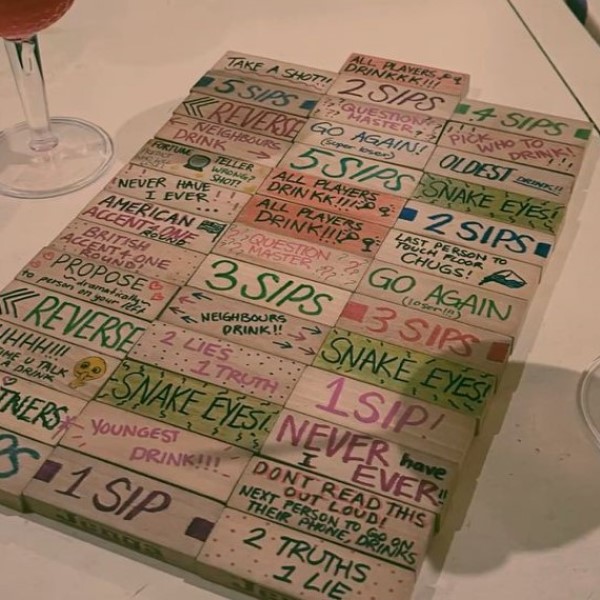 TAKE A SHOT!!
5 SIPS
REVERSE
NEIGHBOURS
DRINK
FORTUNE
TELLER
WRONG?
SHOT!
NEVER HAVE
I EVER!
AMERICAN
ACCENT ONE
ROUND
BRITISH
ACCENT ONE
ROUND!
PROPOSE
to person dramatically
on your left
REVERSE
HHH!!!
U TALK
A DRINK
TNERS
YOUNGEST
DRINK!!!
1 SIP
Jenga
ALL PLAYERS
DRINKKK!!!
2 SIPS
QUESTION
MASTER
GO AGAIN!
(super loser)
5 SIPS
ALL PLAYERS
DRINKK!!!
ALL PLAYERS
DRINK!!!
QUESTION
MASTER
3 SIPS
NEIGHBOURS
DRINK!!
2 LIES
1 TRUTH
SNAKE EYES!
4 SIPS
PICK
WHO TO
DRINK!
OLDEST DRINK!!
SNAKE EYES!
2 SIPS
LAST PERSON TO
TOUCH FLOOR
CHUGS!
GO AGAIN
(loser!!!)
3 SIPS
SNAKE EYES!
1 SIP!
NEVER have
I EVER!!
DONT READ THIS
OUT LOUD!
NEXT PERSON TO GO ON
THEIR PHONE, DRINKS
2 TRUTHS
1 LIE